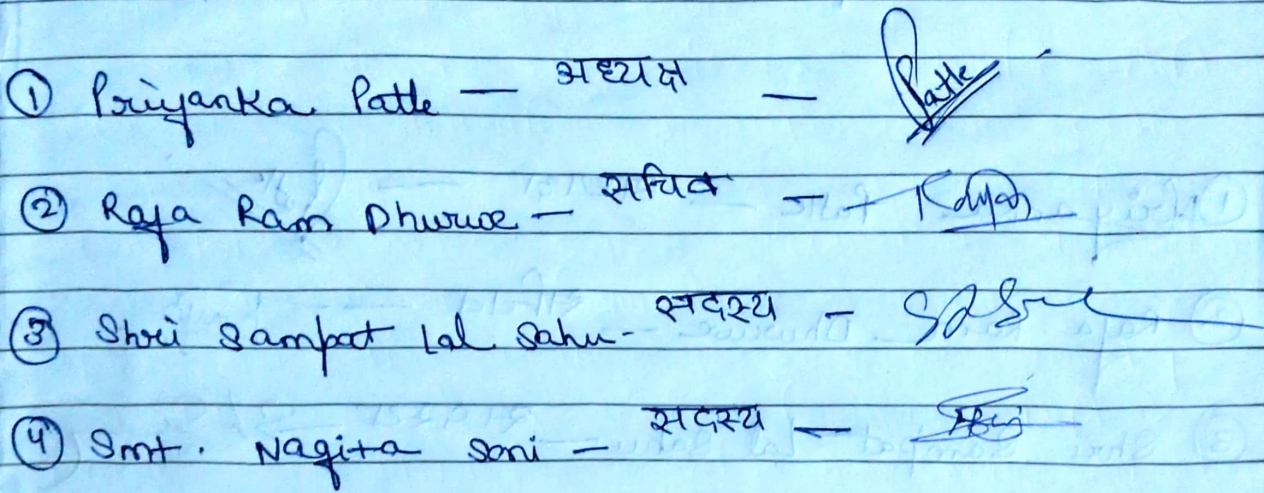 ① Priyanka Patle — अध्यक्ष — Patle
② Raja Ram Dhurwe — सचिव —
③ Shri Sampat Lal Sahu - सदस्य -
④ Smt. Nagita Soni — सदस्य —